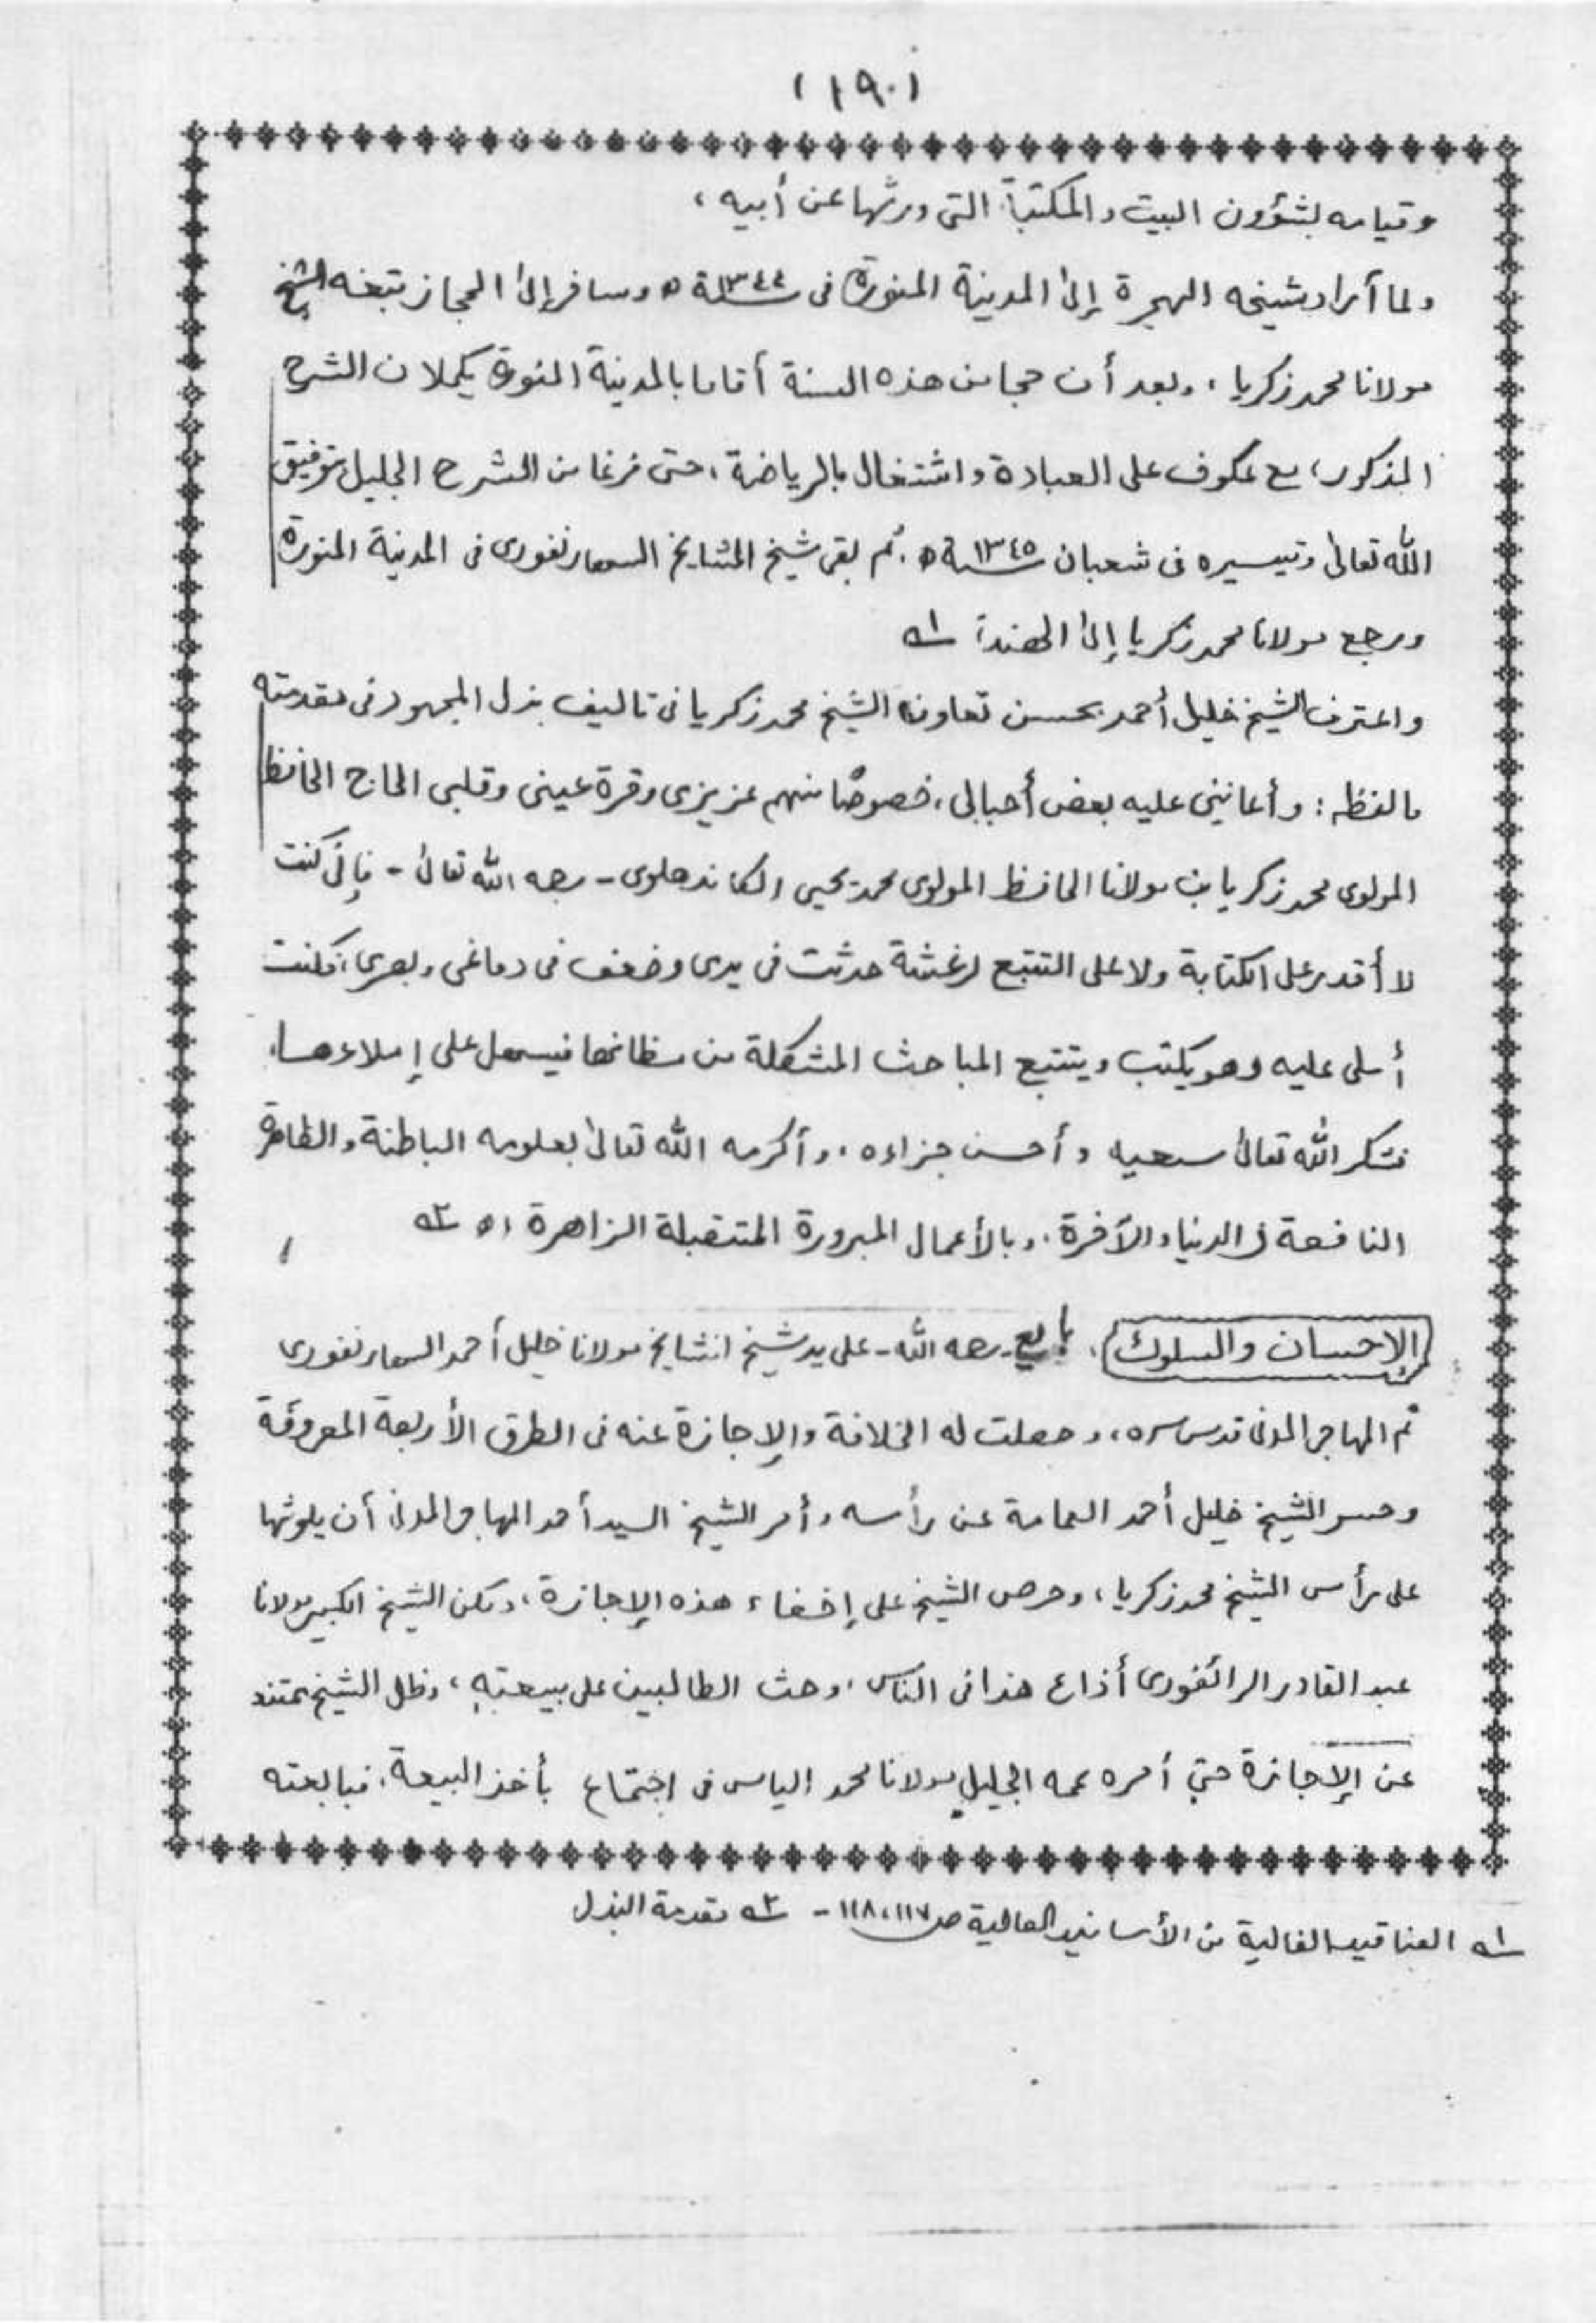 (١٩٠)
وقيامه بشؤون البيت والمكتبة التى ورثها عن أبيه،
ولما أراد شيخه الهجرة إلى المدينة المنورة فى سنة ١٣٤٤ه وسافر إلى الحجاز تبعه الشيخ
مولانا محمد زكريا، وبعد أن حجا من هذه السنة أقاما بالمدينة المنورة يكملان الشرح
المذكور، مع عكوف على العبادة واشتغال بالرياضة، حتى فرغا من الشرح الجليل بتوفيق
الله تعالى وتيسيره فى شعبان سنة ١٣٤٥ه. ثم بقى شيخ المشايخ السهارنفورى فى المدينة المنورة
ورجع مولانا محمد زكريا إلى الهند اه ١ه
واعترف الشيخ خليل أحمد بحسن تعاون الشيخ محمد زكريا فى تاليف بذل المجهود فى مقدمته
مالفظه: وأعاننى عليه بعض أحبابى، خصوصًا منهم عزيزى وقرة عينى وقلبى الحاج الحافظ
المولوى محمد زكريا بن مولانا الحافظ المولوى محمد يحيى الكاندهلوى - رحمه الله تعالى - فإنى كنت
لا أقدر على الكتابة ولا على التتبع لرعشة حدثت فى يدى وضعف فى دماغى وبصرى، فكنت
أملى عليه وهو يكتب ويتتبع المباحث المشكلة من مظانها فيسهل على إملاءها،
فشكر الله تعالى سعيه وأحسن جزاءه، وأكرمه الله تعالى بعلومه الباطنة والظاهرة
النافعة فى الدنيا والآخرة، وبالأعمال المبرورة المتقبلة الزاهرة اه ٢ه
الإحسان والسلوك، بايع - رحمه الله - على يد شيخ المشايخ مولانا خليل أحمد السهارنفورى
ثم المهاجر المدنى قدس سره، وحصلت له الخلافة والإجازة عنه فى الطرق الأربعة المعروفة
وحسر الشيخ خليل أحمد العمامة عن رأسه وأمر الشيخ السيد أحمد المهاجر المدنى أن يلوثها
على رأس الشيخ محمد زكريا، وحرص الشيخ على إخفاء هذه الإجازة، ولكن الشيخ الكبير مولانا
عبد القادر الرائفورى أذاع هذا فى الناس، وحث الطالبين على بيعته، وظل الشيخ يمتنع
عن الإجازة حتى أمره عمه الجليل مولانا محمد الياس فى اجتماع بأخذ البيعة، فبايعته
١ه العناقيد الغالية من الأسانيد العالية ص ١١٧، ١١٨ - ٢ه مقدمة البذل